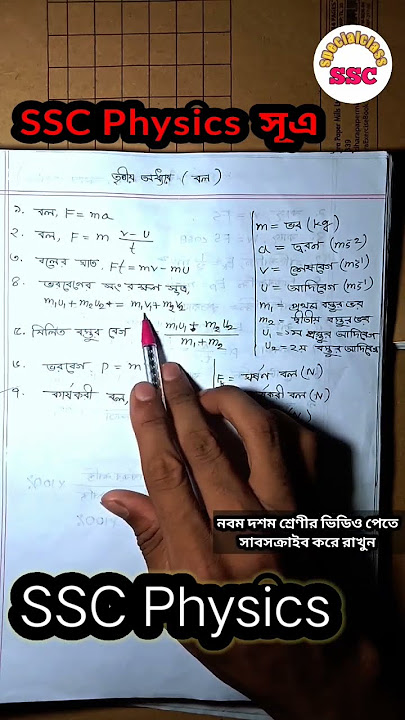 specialclass
SSC
SSC Physics সূএ
তৃতীয় অধ্যায় (বল)
১. বল, F = ma
২. বল, F = m (v - u)/t
৩. বলের ঘাত, Ft = mv - mu
৪. ভরবেগের সংরক্ষণ সূত্র,
m₁u₁ + m₂u₂ = m₁v₁ + m₂v₂
৫. মিলিত বস্তুর বেগ (m₁u₁ + m₂u₂)/(m₁ + m₂)
৬. ভরবেগ, P = m
৭. কার্যকরী বল,
m = ভর (kg)
a = ত্বরণ (ms⁻²)
v = শেষবেগ (ms⁻¹)
u = আদিবেগ (ms⁻¹)
m₁ = প্রথম বস্তুর ভর
m₂ = দ্বিতীয় বস্তুর ভর
u₁ = ১ম বস্তুর আদিবেগ
u₂ = ২য় বস্তুর আদিবেগ
= ঘর্ষণ বল (N)
করী বল (N)
(N)
নবম দশম শ্রেণীর ভিডিও পেতে
সাবসক্রাইব করে রাখুন
SSC Physics